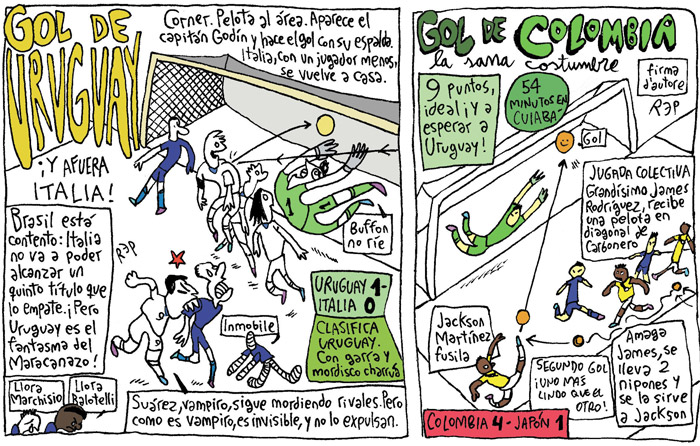 GOL DE
URUGUAY
¡Y AFUERA
ITALIA!
Corner. Pelota al área. Aparece el
capitán Godín y hace el gol con su espalda.
Italia, con un jugador menos,
se vuelve a casa.
Brasil está
contento: Italia
no va a poder
alcanzar un
quinto título que
lo empate. ¡Pero
Uruguay es el
fantasma del
Maracanazo!
REP
1
Buffon
no ríe
URUGUAY 1-
ITALIA 0
CLASIFICA
URUGUAY.
Con garra y
mordisco charrúa
Inmobile
Llora
Marchisio
Llora
Balotelli
Suárez, vampiro, sigue mordiendo rivales. Pero
como es vampiro, es invisible, y no lo expulsan.
GOL DE COLOMBIA
la sana costumbre
firma
d'autore
REP
9 puntos,
ideal ¡y a
esperar a
Uruguay!
54
MINUTOS EN
CUIABÁ
Gol
JUGADA COLECTIVA
Grandísimo James
Rodríguez, recibe
una pelota en
diagonal de
Carbonero
Jackson
Martínez
fusila
SEGUNDO GOL
¡UNO MÁS
LINDO QUE EL
OTRO!
Amaga
James, se
lleva 2
nipones y
se la sirve
a Jackson
COLOMBIA 4 - JAPÓN 1